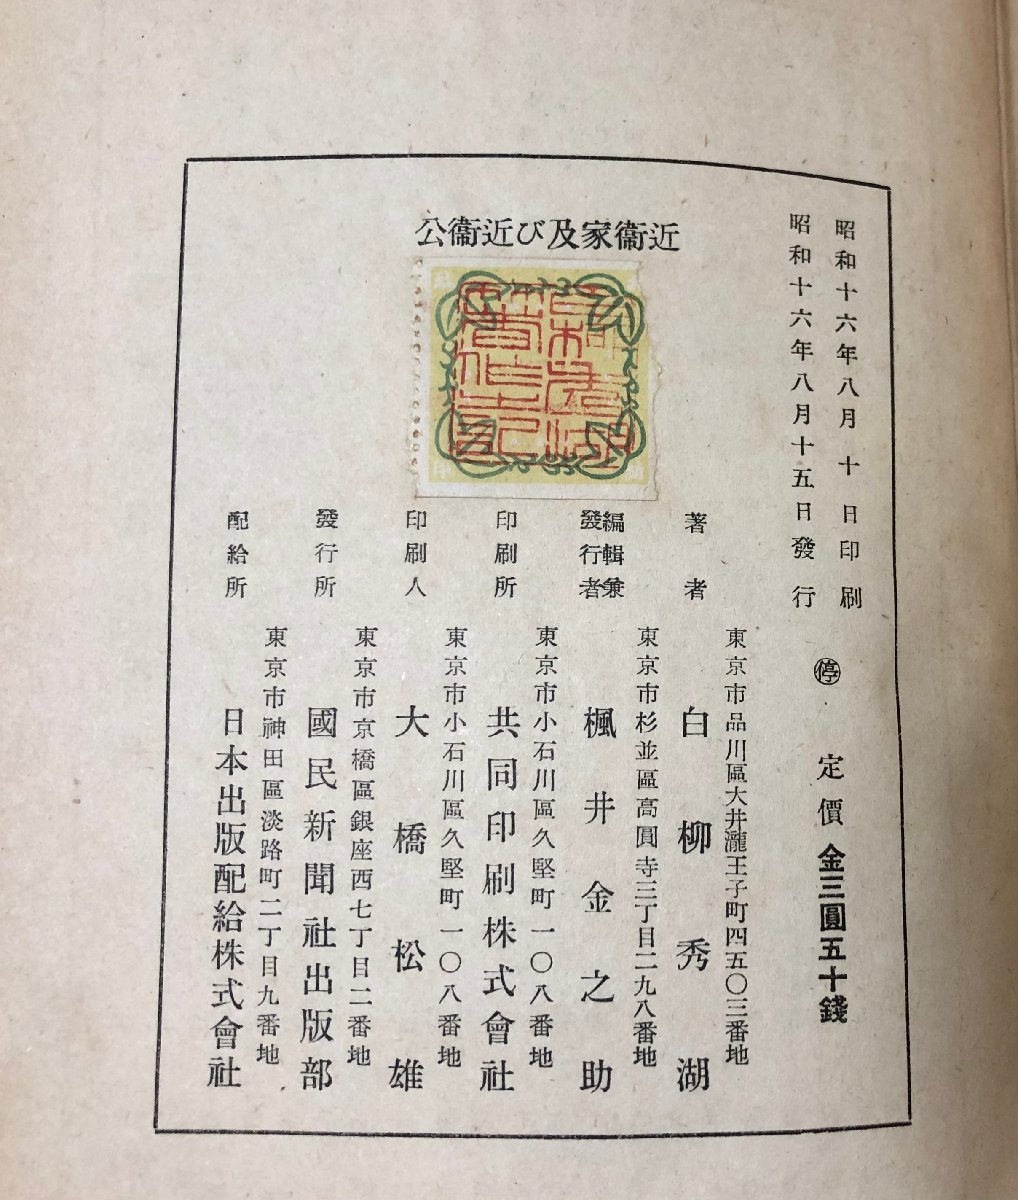 近衞家及び近衞公
昭和十六年八月十日印刷
昭和十六年八月十五日發行
停
定價金三圓五十錢
東京市品川區大井瀧王子町四五〇三番地
著者 白柳秀湖
東京市杉並區高圓寺三丁目二九八番地
編輯兼
發行者 楓井金之助
東京市小石川區久堅町一〇八番地
印刷所 共同印刷株式會社
東京市小石川區久堅町一〇八番地
印刷人 大橋松雄
東京市京橋區銀座西七丁目二番地
發行所 國民新聞社出版部
東京市神田區淡路町二丁目九番地
配給所 日本出版配給株式會社